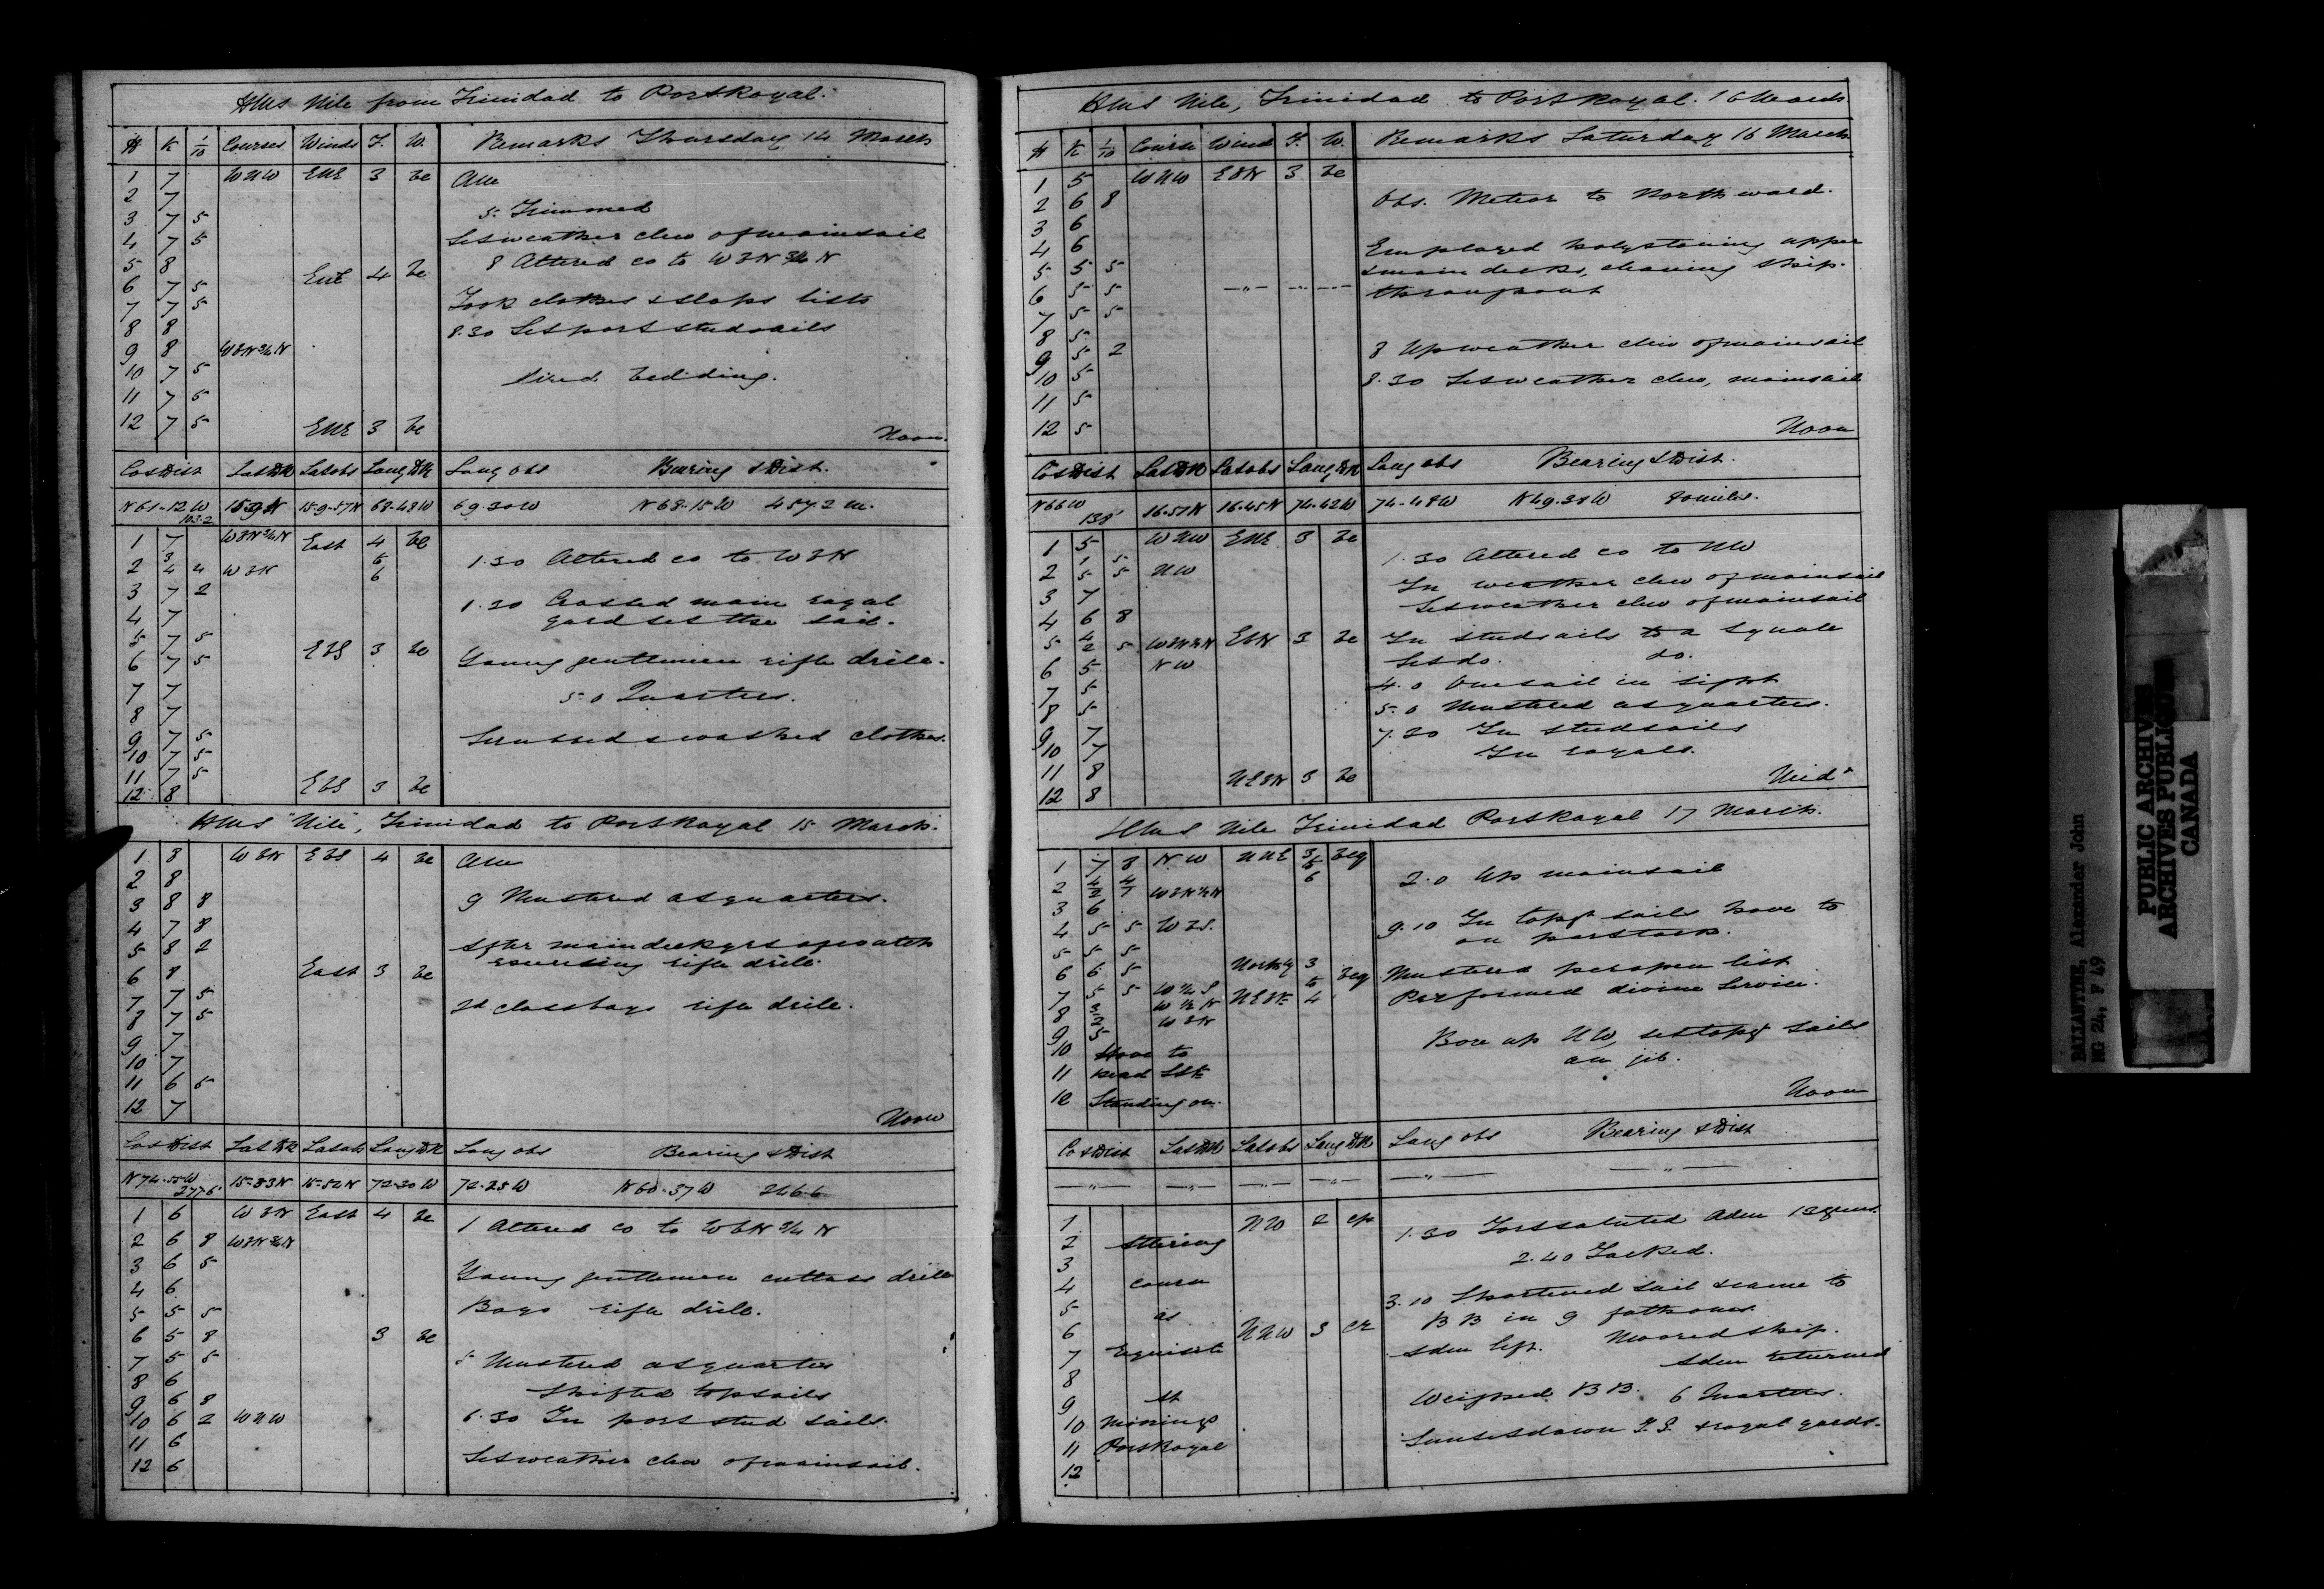 HMS Nile from Trinidad to Port Royal.
H K 1/10 Courses Winds F. W. Remarks Thursday 14 March
1 7 WNW ENE 3 bc AM
2 7
5. Trimmed
3 7 5
Set weather clew of mainsail
4 7 5
8 Altered co to WBN 3/4 N
5 8 ENE 4 bc
6 7 5
Took clothes & slops lists
7 7 5
8 8
8.30 Set port studsails
9 8 WBN 3/4 N
10 7 5
Aired bedding.
11 7 5
12 7 5 ENE 3 bc Noon.
Co & Dist Lat DR Lat obs Long DR Long obs Bearing & Dist.
N 61-12 W 103.2 15-9-57N 68-48W 69.30W N 68-15 W 457.2 m.
1 7 WBN 3/4 N East 4 bc
2 3/4 4 WBN 5 6 1.30 Altered co to WBN
3 7 2
1.30 Crossed main royal
4 7
yard set the sail.
5 7 5 EBS 3 bc
6 7 5 Young gentlemen rifle drill.
7 7
5.0 Quarters.
8 7
9 7 5 Scrubbed & washed clothes.
10 7 5
11 7 5
12 8 EBS 3 bc
HMS "Nile", Trinidad to Port Royal 15 March.
1 8 WBN EBS 4 bc AM
2 8
9 Mustered at quarters.
3 8 8
4 7 8
5 8 2
After main deck grs of watch
6 8 East 3 bc
rifle drill.
7 7 5
2d class boys rifle drill.
8 7 5
9 7
10 7
11 6 5
12 7 Noon
Co & Dist Lat DR Lat obs Long DR Long obs Bearing & Dist
N 74-55 W 15-52N 72-30W 72-25W N 60-37W 266.6
1 6 WBN East 4 bc
1 Altered co to WBN 3/4 N
2 6 8 WBN 3/4 N
3 6 5
Young gentlemen cutlass drill
4 6
Boys rifle drill.
5 5 5
6 5 8 3 bc
7 5 5 5 Mustered at quarters
8 6 Shifted topsails
9 6 8
10 6 2 WNW 6.30 In port stud sails.
11 6
12 6 Set weather clew of mainsail.
HMS Nile, Trinidad to Port Royal. 16 March
H K 1/10 Course Wind F. W. Remarks Saturday 16 March
1 5 WNW EBN 3 bc
2 6 8 Obs. Meteor to Northward.
3 6
4 6 Employed holystoning upper
5 5 5 & main decks, cleaning ship
6 5 5 — " — throughout
7 5 5
8 5
9 5 2 8 Up weather clew of mainsail
10 5 8.30 Set weather clew, mainsail
11 5
12 5 Noon
Co & Dist Lat DR Lat obs Long DR Long obs Bearing & Dist.
N 66 W 138' 16.51N 16.45N 74.42W 74-48W N 49.38W 80 miles.
1 5 WNW ENE 3 bc
1.30 Altered co to NW
2 1/5 5/5 NW
In weather clew of mainsail
3 7
Set weather clew of mainsail
4 6 8
5 4/2 5 EBN 3 bc In studsails to a squall
6 5 NW Set do. do.
7 5 4.0 One sail in sight
8 5 5.0 Mustered at quarters.
9 7 7.30 In studsails
10 7 In royals.
11 8 NEBN 3 bc Midt
12 8
HMS Nile Trinidad Port Royal 17 March.
1 7 8 NW NNE 3 to 6 bcq
2 4/2 4/7 WBN 1/2 N 2.0 Up mainsail
3 6
4 5 5 WBS. 9.10 In topgt sails hove to
5 5 5 on port tack.
6 6 5 Northy 3 to 4 bcq Mustered per open list
7 5 5 W 1/4 S Performed divine Service.
8 W 1/2 N
WBN
9 5 Bore up NW, set topgt sails
10 Hove to
jib.
11 head
12 Standing on. Noon
Co & Dist Lat DR Lat obs Long DR Long obs Bearing & Dist
— " — — " — — " — — " — — " — — " —
1 NW 2 cp 1.30 Fort saluted Adm 13 guns.
2 Steering
2.40 Tacked.
3
4 course 3.10 Shortened sail & came to
5 as BB in 9 fathoms.
6 NNW 3 cr Adm left. Moored ship.
7 requisite Adm returned
8 Weighed BB. 6 Quarters.
9 At
10 Moorings Sunset down T.G. & royal yards.
11 Port Royal
12
BALLANTINE, Alexander John
MG 24, F 49
PUBLIC ARCHIVES
ARCHIVES PUBLIQUES
CANADA